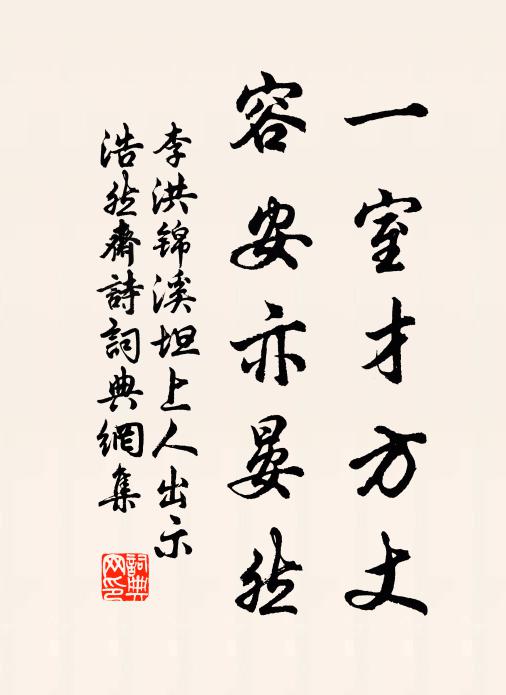 一室才方丈
容安亦晏然
李洪锦溪坦上人出示
浩然齋詩詞典網集
詞典網印